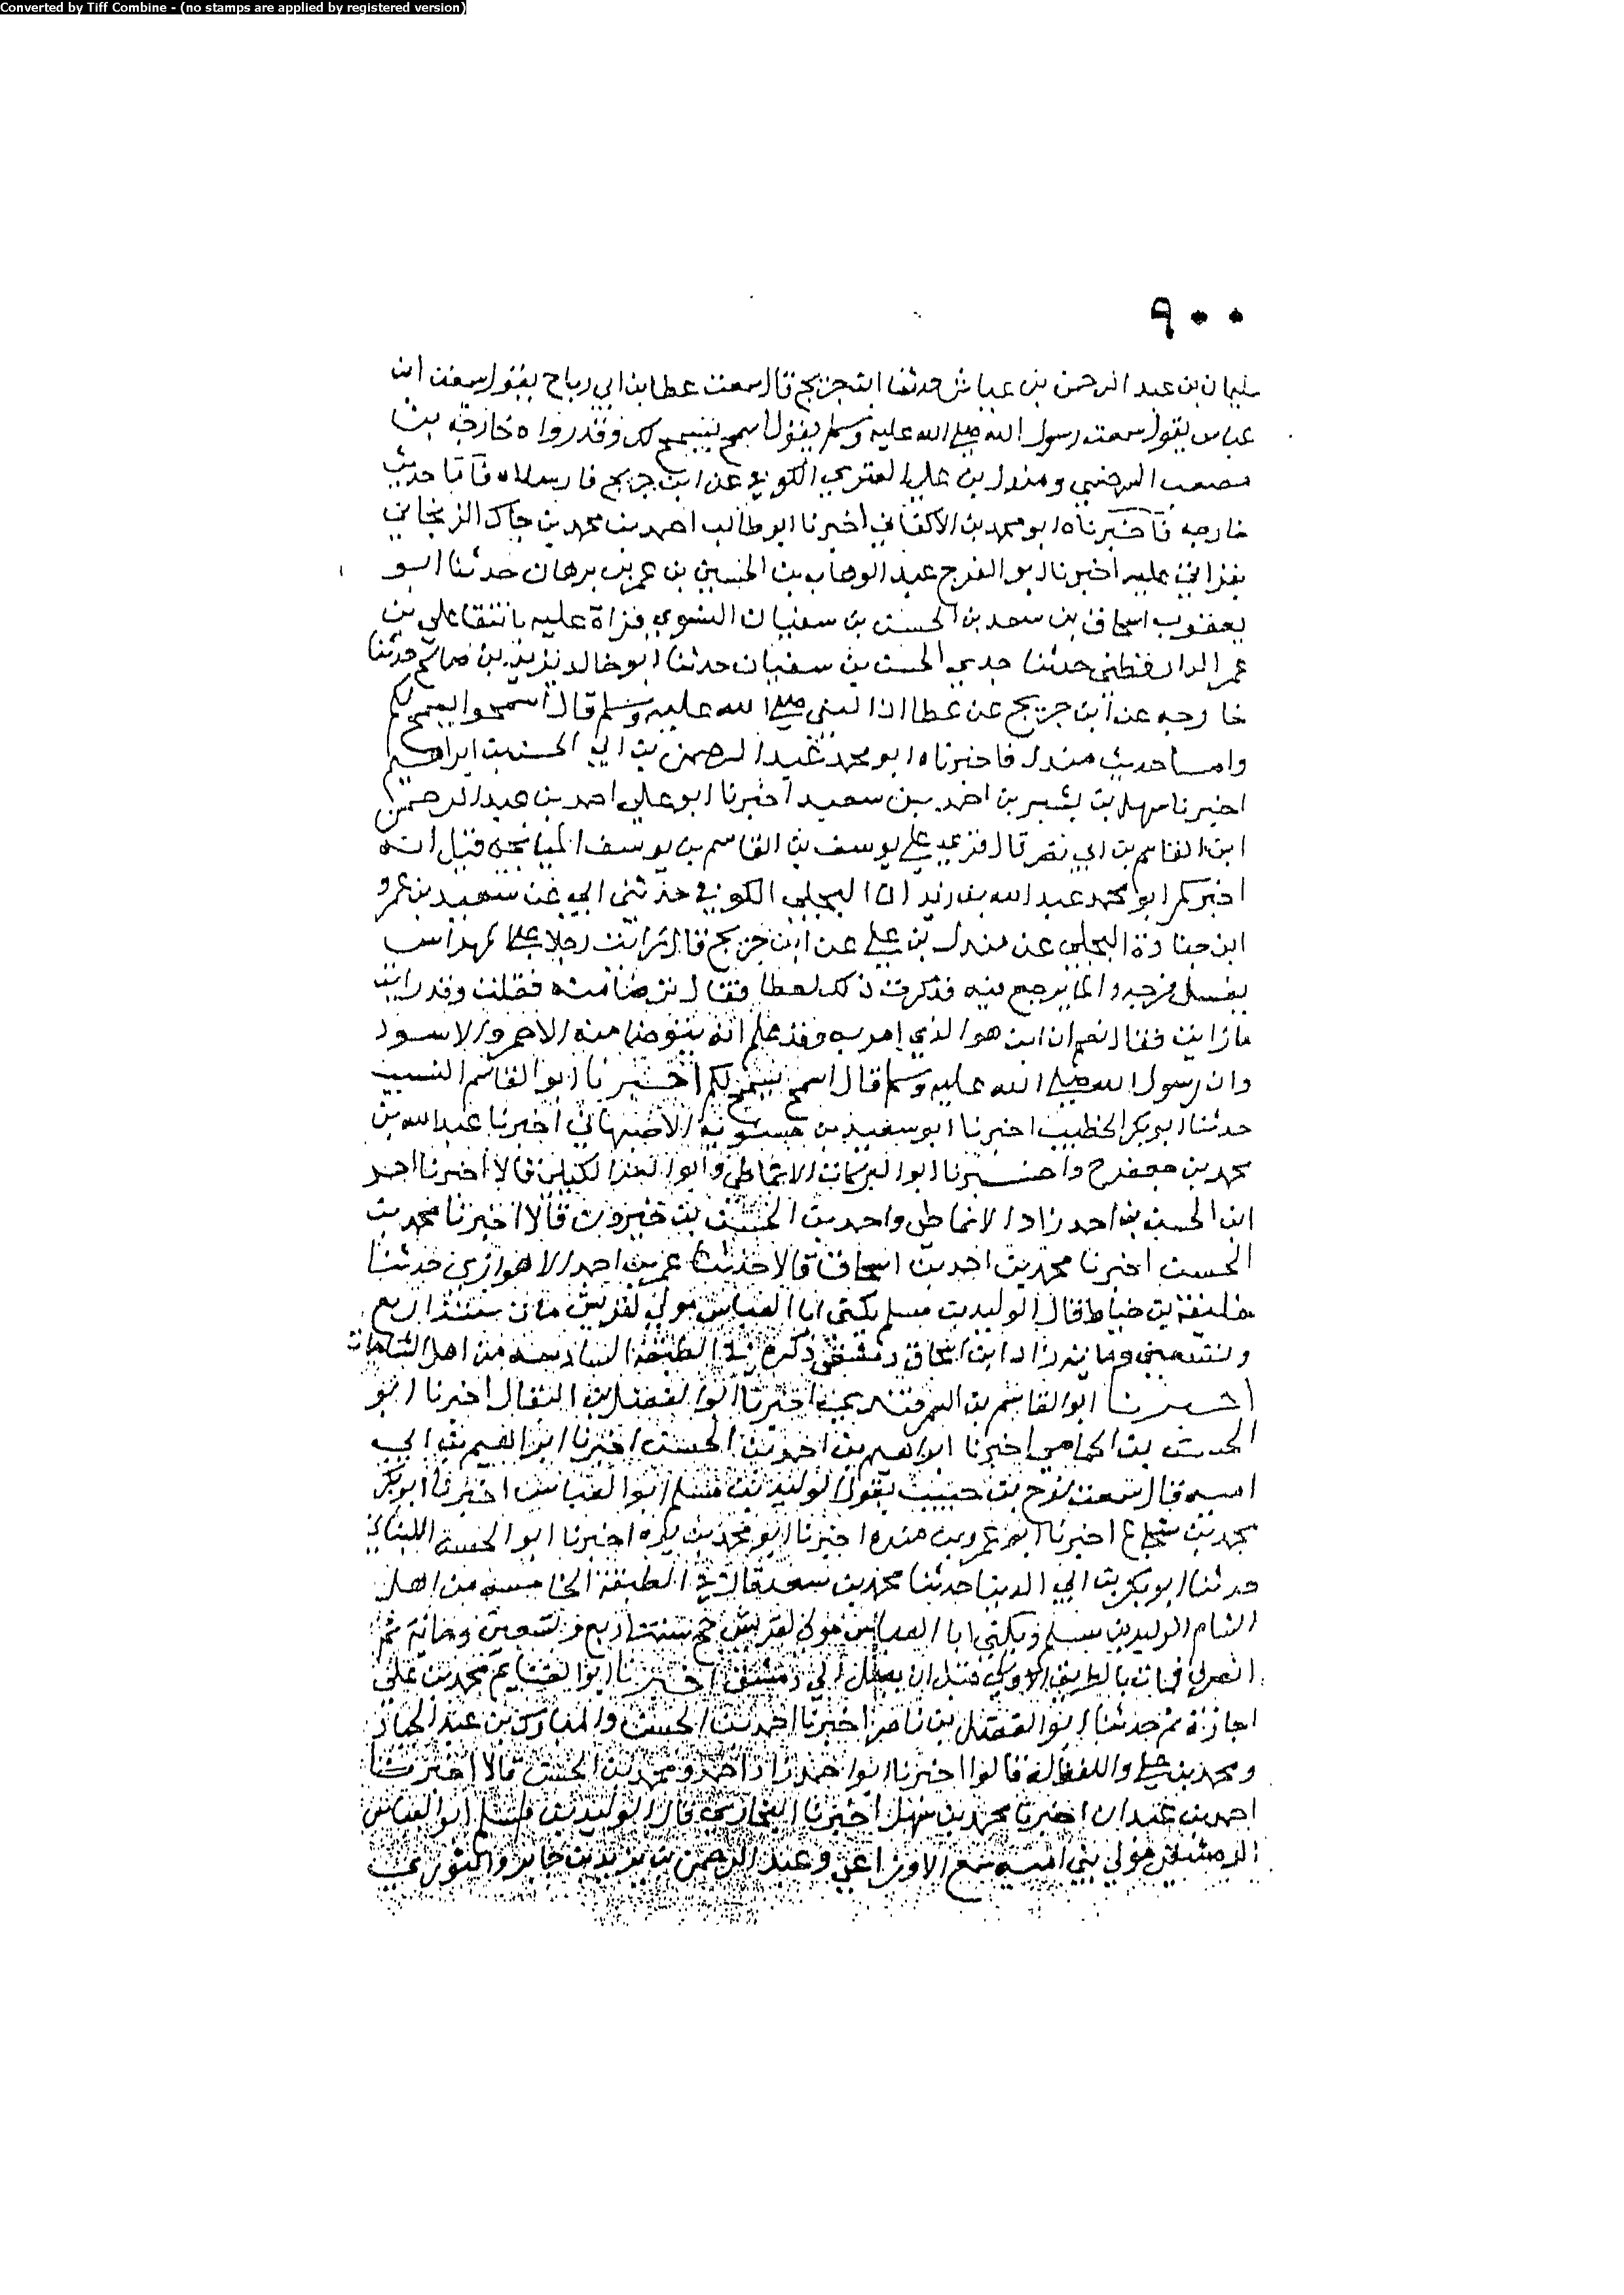 Converted by Tiff Combine - (no stamps are applied by registered version)
٩٠٠
سليمان بن عبد الرحمن بن عياش حدثنا ابن جريج قال سمعت عطا بن ابي رباح يقول سمعت ابن
عباس يقول سمعت رسول الله صلى الله عليه وسلم يقول اسمح يسمح لك وقد رواه خارجة بن
مصعب السرخسي ومندل بن علي العنزي الكوفي عن ابن جريج فارسلاه فاما حديث
خارجه فاخبرناه ابو محمد بن الاكفاني اخبرنا ابو طالب احمد بن محمد بن جاك الزنجاني
بقراتي عليه اخبرنا ابو الفرج عبد الوهاب بن الحسين بن عمر بن برهان حدثنا ابو
يعقوب اسحاق بن سعد بن الحسن بن سفيان النسوي قراة عليه بانتقا علي بن
عمر الدارقطني حدثنا جدي الحسن بن سفيان حدثنا ابو خالد يزيد بن صالح حدثنا
خارجه عن ابن جريج عن عطا ان النبي صلى الله عليه وسلم قال اسمحوا يسمح لكم
واما حديث مندل فاخبرناه ابو محمد عبد الرحمن بن ابي الحسن بن ابراهيم
اخبرنا سهل بن بشر بن احمد بن سعيد اخبرنا ابو علي احمد بن عبد الرحمن
ابن القاسم بن ابي نصر قال قري علي يوسف بن القاسم بن يوسف الميانجي قيل له
اخبركم ابو محمد عبد الله بن زيدان البجلي الكوفي حدثني ابي عن سعيد بن عمرو
ابن جنادة البجلي عن مندل بن علي عن ابن جريج قال رايت رجلا على مهراس
يغسل فرجه والما يرجع فيه فذكرت ذلك لعطا فقال توضا منه فقلت وقد رايت
ما رايت فقال نعم ان ابن هو الذي امر به وقد علم انه يتوضا منه الاحمر والاسود
وان رسول الله صلى الله عليه وسلم قال اسمح يسمح لكم اخبرنا ابو القاسم النسيب
حدثنا ابو بكر الخطيب اخبرنا ابو سعيد بن حسنويه الاصبهاني اخبرنا عبد الله بن
محمد بن جعفر ح واخبرنا ابو البركات الانماطي وابو العز الكيلي قالا اخبرنا احمد
ابن الحسن بن احمد زاد الانماطي واحمد بن الحسن بن خيرون قالا اخبرنا محمد بن
الحسن اخبرنا محمد بن احمد بن اسحاق قالا حدثنا عمر بن احمد الاهوازي حدثنا
خليفة بن خياط قال الوليد بن مسلم يكنى ابا العباس مولى لقريش مات سنة اربع
وتسعين ومايه زاد ابن اسحاق دمشقي ذكره في الطبقة السادسه من اهل الشامات
اخبرنا ابو القاسم بن السمرقندي اخبرنا ابو الفضل بن البقال اخبرنا ابو
الحسن بن الحمامي اخبرنا ابراهيم بن احمد بن الحسن اخبرنا ابراهيم بن ابي
اميه قال سمعت نوح بن حبيب يقول الوليد بن مسلم ابو العباس اخبرنا ابو بكر
محمد بن شجاع اخبرنا ابو عمرو بن منده اخبرنا ابو محمد بن يوه اخبرنا ابو الحسن اللنباني
حدثنا ابو بكر بن ابي الدنيا حدثنا محمد بن سعد قال في الطبقة الخامسه من اهل
الشام الوليد بن مسلم ويكنى ابا العباس مولى لقريش حج سنة اربع وتسعين ومائة ثم
انصرف فمات بالطريق قبل ان يصل الى دمشق اخبرنا ابو الغنايم محمد بن علي
اجازة ثم حدثنا ابو الفضل بن ناصر اخبرنا احمد بن الحسن والمبارك بن عبد الجبار
ومحمد بن علي واللفظ له قالوا اخبرنا ابو احمد زاد احمد ومحمد بن الحسن قالا اخبرنا
احمد بن عبدان اخبرنا محمد بن سهل اخبرنا البخاري قال الوليد بن مسلم ابو العباس
الدمشقي مولى بني اميه سمع الاوزاعي وعبد الرحمن بن يزيد بن جابر والثوري